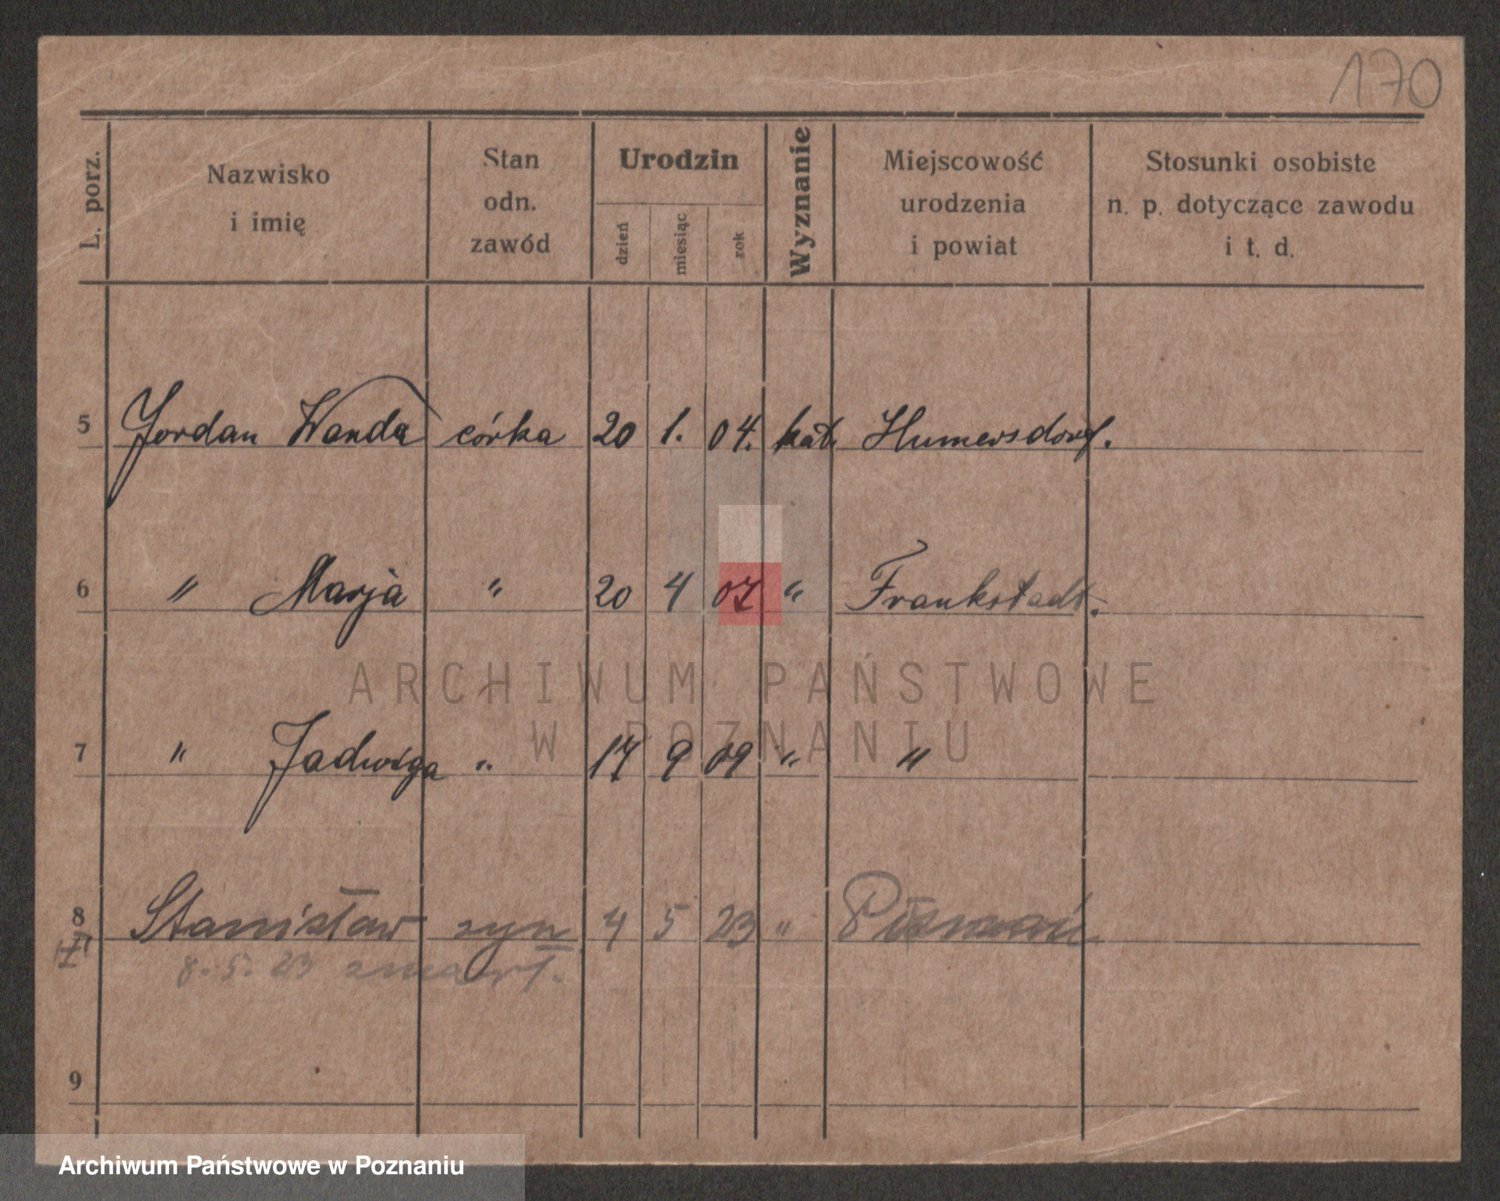 170
L. porz.
Nazwisko
i imię
Stan
odn.
zawód
Urodzin
dzień
miesiąc
rok
Wyznanie
Miejscowość
urodzenia
i powiat
Stosunki osobiste
n. p. dotyczące zawodu
i t. d.
5 Jordan Wanda córka 20 1. 04. kat. Humersdorf.
6 " Marja " 20 4 07 " Frankstadt.
ARCHIWUM PAŃSTWOWE
W POZNANIU
7 " Jadwiga " 17 9 09 " "
8 Stanisław syn 4 5 23 " Poznań
8. 5. 23 zmarł.
9
Archiwum Państwowe w Poznaniu